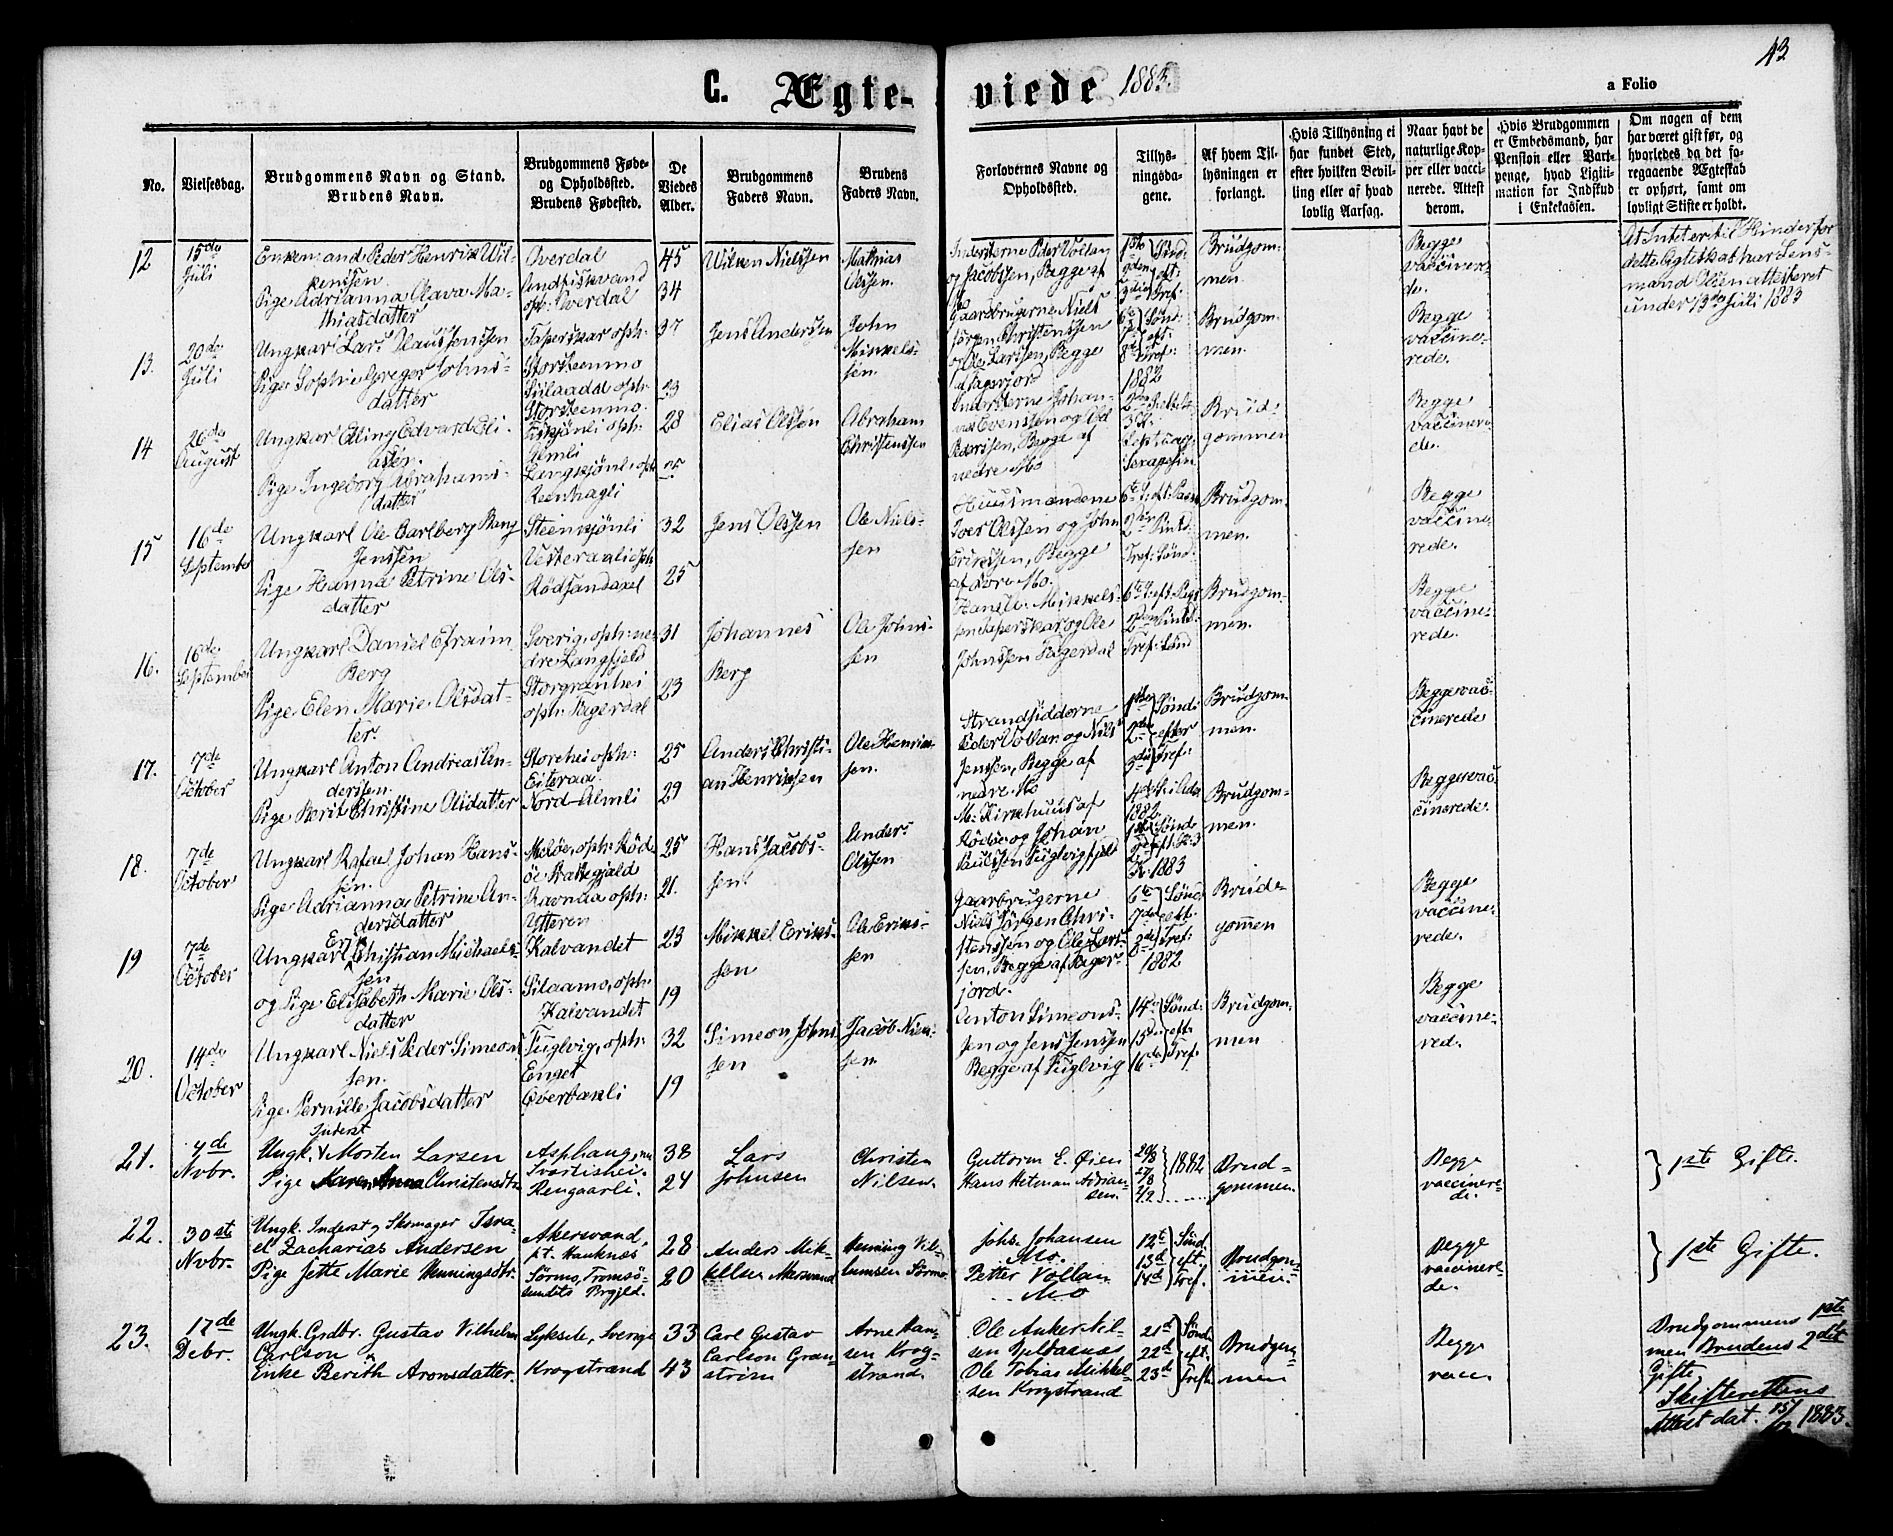 43
C. Ægte-viede 1883.
a Folio
No.
Vielsesdag.
Brudgommens Navn og Stand.
Brudens Navn.
Brudgommens Føde-
og Opholdssted.
Brudens Fødested.
De
Viedes
Alder.
Brudgommens
Faders Navn.
Brudens
Faders Navn.
Forlovernes Navne og
Opholdssted.
Tillys-
ningsda-
gene.
Af hvem Til-
lysningen er
forlangt.
Hvis Tillysning ei
har fundet Sted,
efter hvilken Bevil-
ling eller af hvad
lovlig Aarsag.
Naar havt de
naturlige Kop-
per eller vacci-
nerede. Attest
derom.
Hvis Brudgommen
er Embedsmand, har
Pension eller Vart-
penge, hvad Legiti-
mation for Indskud
i Enkekassen.
Om nogen af dem
har været gift før, og
hvorledes da det fo-
regaaende Ægteskab
er ophørt, samt om
lovligt Skifte er holdt.
12
15de
Juli
Enkemand Peder Henrik Wil-
kenssen
Pige Adrianna Olava Ma-
thiasdatter
Overdal
Andfiskvand
oph: Overdal
45
34
Wilken Nielssen
Mathias
Olssen.
Indersterne Peder Vollan
og Jacobssen, Begge af
Mo
1ste
2den
3die
Sønd:
eft:
Tref:
Brudgom-
men.
Begge
vacciner-
de.
At Intet er til Hinder for
dette Ægteskab har Lens-
mand Olsen attesteret
under 13de Juli 1883
13.
20de
Juli
Ungkarl Lars Klaus Jenssen
Pige Sophie Gregor Johns-
datter
Taperskar oph:
Storsteenmo
oph:
Storsteenmo.
37
23
Jens Anderssen
John
Mikkels-
sen.
Gaardbrugerne Niels
Jörgen Christenssen
og Ole Larssen, Begge
af Fagerjord
Sønd:
eft:
Tref:
1882
Brudgom-
men.
Begge
vaccine-
rede.
14
26de
August
Ungkarl Elling Edvard Eli-
assen.
Pige Ingeborg Abrahams-
datter
oph:
Almli
Langkjönli oph:
28
25
Elias Olssen
Abraham
Christenssen
Inderstene Johan-
nes Evenssen og Ole
Pederssen, Begge af
nedre Mo
Brud-
gommen
Begge
vacciner-
ede.
15
16de
September
Ungkarl Ole Carlberg Bang
Jenssen
Pige Hanna Petrine Ols-
datter
Steinkjönli
oph:
Rödsandaxel
32
25
Jens Olssen
Ole Niels-
sen
Huusmændene
Iver Olssen og John
Erikssen, Begge
af Store Mo.
Tref: Sønd:
Brudgom-
men.
Begge
vaccine-
rede.
16.
16de
September
Ungkarl Daniel Efraim
Berg
Pige Elen Marie Olsdat-
ter.
Sverig, oph: ne-
dre Langfjeld
Storgranhei
oph: Fagerdal
31
23
Johannes
Berg
Ole Johns-
sen
Mikkels-
sen Taperskar og Ole
Johnssen Fagerdal
Tref: Sønd
Brudgom-
men.
Begge
vaccine-
rede.
17.
7de
October
Ungkarl Anton Andreas An-
derssen.
Pige Berit Christine Olsdatter
Storehei oph:
Eiteraa
Nord-Almli
25
29
Anders Christi-
an Henrikssen
Ole Henrik-
sen.
Strandsidderne
Peder Vollan og Niels
Jenssen, Begge af
nedre Mo
1ste
2den
3die
Sønd:
efter
Tref:
Brudgom-
men.
Begge vac-
cinerede
18.
7de
October
Ungkarl Rafael Johan Hans-
sen.
Pige Adrianna Petrine An-
dersdatter
Melöe, oph: Röd-
öe Præstegjæld
Ravnaa oph:
Ytteren
25
21.
Hans Jacobs-
sen
Anders
Olssen
M: Kirkhuus af
Rödöe og Johan
Paulssen Fuglvigfjeld
1882
1883
Brudgom-
men.
Begge vac-
cinerede.
19
7de
October
Ungkarl Erik Christian Michaels-
sen
og Pige Elisabeth Marie Ols-
datter
Kalvandet
Silaamo, oph:
Kalvandet
23
19
Mikkel Eriks-
sen
Ole Eriks-
sen
Gaardbrugerne
Niels Jörgen Chri-
stenssen og Ole Lars-
sen, Begge af Fager-
jord.
6te
7de
8de
Sønd:
eft:
Tref:
1882
Brude-
gommen
Begge
vaccine-
rede.
20.
14de
October
Ungkarl Niels Peder Simeons-
sen.
Pige Pernille Jacobsdatter
Fuglvig, oph:
Enget
Överbækli
32
19
Simeon Johns-
sen
Jacob Niel-
sen
Anton Simeons-
sen og Jens Jenssen
Begge af Fuglvig
14de
15de
16de
Sønd:
eft:
Tref:
Brudgom-
men
Begge
vaccine-
red.
21.
4de
Nvbr.
Ungk. Inderst Morten Larsen
Pige Karen Anna Christensdtr
Asphaug, nu
Svartishei.
Rengaarli.
38
24
Lars
Johnsen
Christen
Nilsen.
Guttorm E. Øien
Hans Hetman Adrian-
sen.
20/8
27/8
1882
Brud-
gommen.
Begge
vaccinere-
de.
1ste Gifte.
22.
30st
Nvbr.
Ungk. Inderst og Skomager Isra-
el Zacharias Andersen
Pige Jette Marie Henningsdtr.
Akersvand,
pt. Hauknæs
Sørmo, Tromsö-
sundets Prgjld.
28
20
Anders Mik-
kelsen Akersvand
Henning Vil-
lumsen Sørmo.
Johs. Johansen
Mo.
Petter Vollan
Mo
12te
13d
14d
Sønd.
eft.
Tref.
Brudgom-
men.
Begge
vaccinere-
de.
1ste Gifte.
23.
17de
Debr.
Ungk. Grdbr. Gustav Vilhelm
Carlson
Enke Berith Aronsdatter.
Lyksele, Sverige
Krogstrand
33
43
Carl Gustav
Carlson Gran-
ström
Arne Han-
sen Krog-
strand.
Ole Anker Nil-
sen Hjeldasnæs
Ole Tobias Mikkel-
sen Krogstrand
21d
22d
23d
Sønd.
eft.
Trefh.
Brudgom-
men
Begge
vacc.
Brudgommens 1ste
men Brudens 2det
Gifte.
Skifterettens
Attest dat. 15/12 1883.